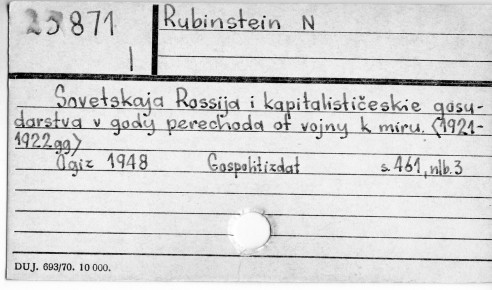 23871
1
Rubinstein N
Sovetskaja Rossija i kapitalističeskie gosu-
darstva v gody perechoda ot vojny k miru. (1921-
1922 gg)
Ogiz 1948 Gospolitizdat s. 461, nlb. 3
DUJ. 693/70. 10 000.